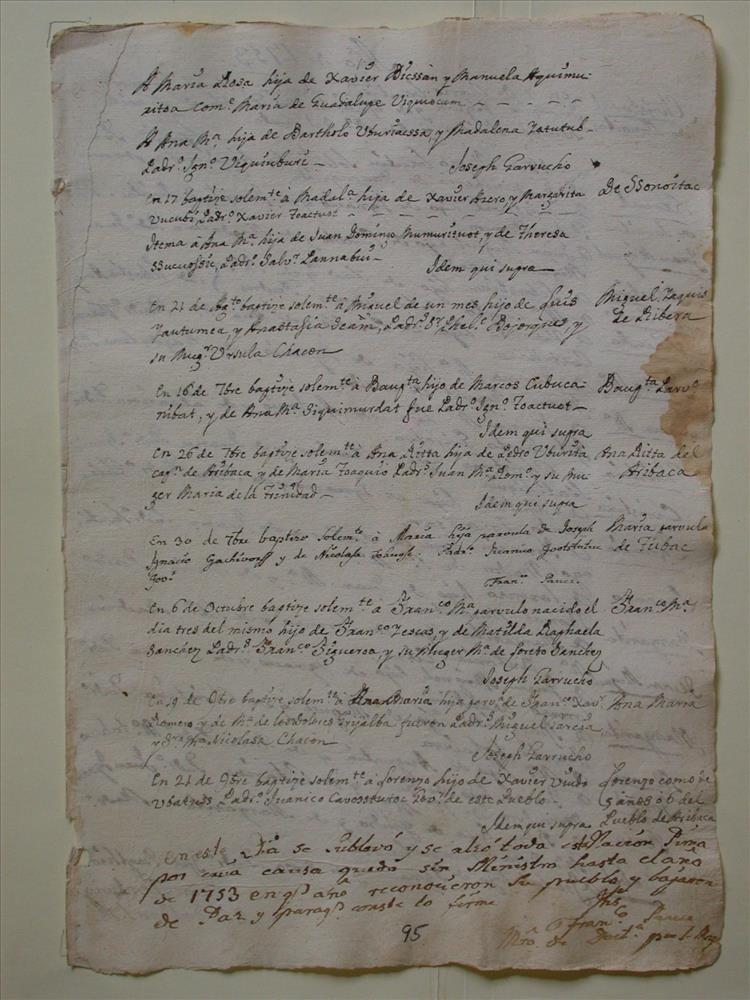 A Maria Rosa hija de Xavier Bicssan y Manuela Aquimu-
ritoa Com.e Maria de Guadalupe Viquiocum
A Ana M.a hija de Bartholo Vburiaessa, y Madalena Tutubb-
Padr.o Ign.o Viquinburi
Joseph Garrucho
En 17 baptize solem.te à Madal.a hija de Xavier Azero, y Margarita
De Sonoitac
Vucubi, Padr.o Xavier Toactuot
Item a Ana M.a hija de Juan Domingo Mumurituot, y de Theresa
Padr.o Salv.r Cannabui
Idem qui supra
En 21 de Ag.to baptize solem.te à Miguel de un mes, hijo de Luis
Miguel Yaquis
Yautumea, y Anastasia Padr.s D.n Phel.e Bojorques, y
de Ribera
su Mug.r Ursula Chacon
En 16 de 7bre baptize solem.te à Baup.ta hijo de Marcos Cubuca-
Baup.ta Parv.o
ribat, y de Ana M.a Siquimurdat fue Padr.o Ign.o Toactuot
Idem qui supra
En 26 de 7bre baptize solem.te à Ana Ritta hija de Pedro Vburitta
Ana Ritta del
cap.n de Aribaca y de Maria Toaquio Padr.s Juan M.a Rom.o y su mu-
Aribaca
ger Maria de la Trinidad
Idem qui supra
En 30 de 7bre baptizo solem.te à Maria hija parvula de Joseph
Maria parvula
Ignacio y de Nicolasa Padr.s
de Tubac
Gov.r
Fran.co Pauer
En 6 de Octubre baptize solem.te à Fran.co M.a parvulo nacido el
Fran.co M.a
dia tres del mismo hijo de Fran.co Vescas, y de Matilda Raphaela
Sanchez Padr.s Fran.co Figueroa, y su Muger M.a de Loreto Sanchez
Joseph Garrucho
En 19 de Obre baptize solem.te à Ana Maria hija parv.a de Fran.co Xav.r
Ana Maria
Romero y de M.a de los Dolores Grijalba fueron Padr.s Miguel Garcia
y D.ña Nicolasa Chacon
Joseph Garrucho
En 21 de 9bre baptize solem.te à Lorenzo hijo de Xavier Viudo
Lorenzo como de
Padr.o Juanico Cavosstutoc Gov.r de este Pueblo
5 años o 6 del
Idem qui supra
Pueblo de Aribaca
En este Dia se sublevó y se alzó toda esta Nacion Pima
por cuia causa quedó sin Ministro hasta el año
de 1753 en q.e año reconocieron su pueblo y bajaron
de Paz y para q.e conste lo firmé
Jhs
Fran.co Pauer
M.ro de Doct.a por S. Mag.
95